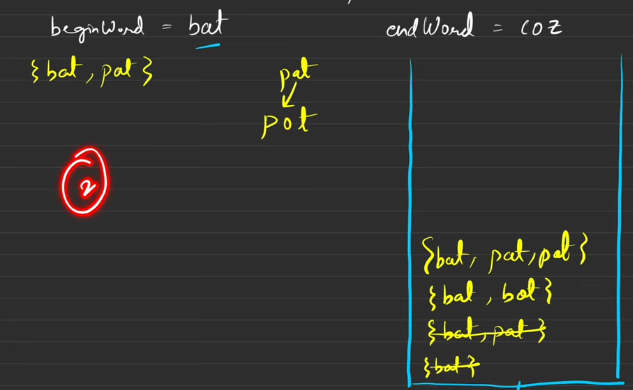 beginWord = bat
endWord = coz
{bat, pat}
pat
pot
2
{bat, pat, pot}
{bat, bot}
{bat, pat}
{bat}